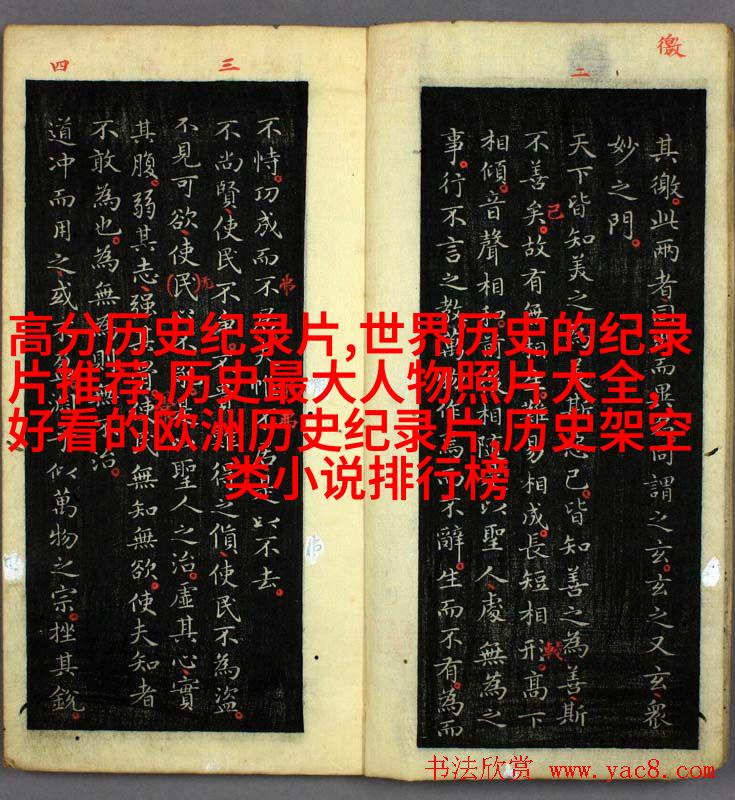 高分历史纪录片,世界历史的纪录
片推荐,历史最大人物照片大全,
好看的欧洲历史纪录片,历史架空
类小说排行榜
徼
二
其徼此两者同而異同謂之玄玄之又玄衆
妙之門
天下皆知美之為斯已皆知善之為善斯
不善矣故有無相難易相成長短相形高下
相傾音聲相相以聖人處無為之
事行不言之教萬作而不辭生而不有為而
己
三
四
不恃功成而不夫惟不是以不去
不尚賢使民不得之貨使民不為盜
不見可欲使民心不聖人之治虛其心實
其腹弱其志強其使民無知無欲使夫知者
不敢為也為無為則無不治
道冲而用之或不盈淵似萬物之宗挫其銳
书法欣赏 www.yac8.com